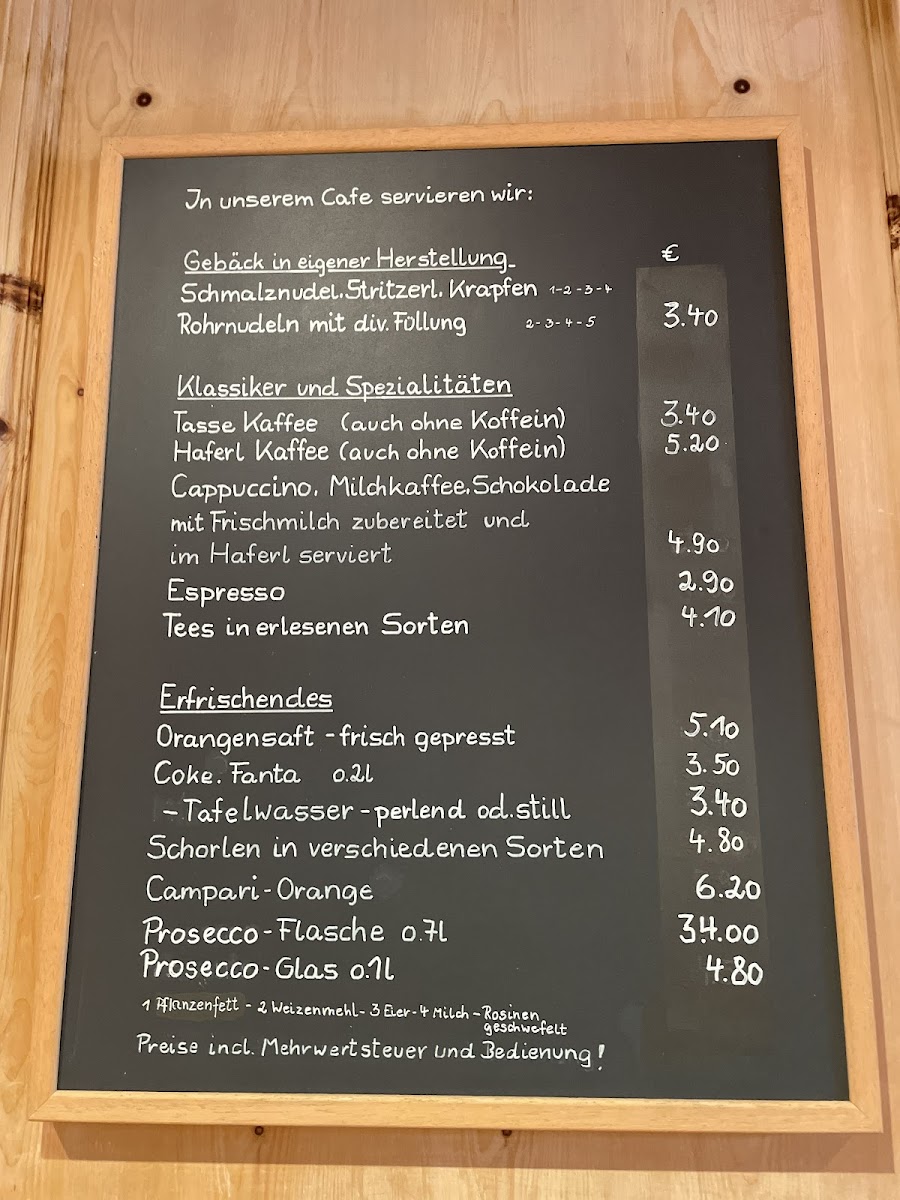 In unserem Cafe servieren wir:
Gebäck in eigener Herstellung €
Schmalznudel. Stritzerl. Krapfen 1-2-3-4
Rohrnudeln mit div. Füllung 2-3-4-5 3.40
Klassiker und Spezialitäten
Tasse Kaffee (auch ohne Koffein) 3.40
Haferl Kaffee (auch ohne Koffein) 5.20
Cappuccino. Milchkaffee. Schokolade
mit Frischmilch zubereitet und
im Haferl serviert 4.90
Espresso 2.90
Tees in erlesenen Sorten 4.10
Erfrischendes
Orangensaft - frisch gepresst 5.10
Coke. Fanta 0.2l 3.50
- Tafelwasser - perlend od. still 3.40
Schorlen in verschiedenen Sorten 4.80
Campari - Orange 6.20
Prosecco - Flasche 0.7l 34.00
Prosecco - Glas 0.1l 4.80
1 Pflanzenfett - 2 Weizenmehl - 3 Eier - 4 Milch - Rosinen
geschwefelt
Preise incl. Mehrwertsteuer und Bedienung!